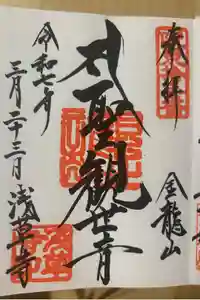 奉拝
金龍山
聖観世音
令和七年
三月二十三日
浅草寺